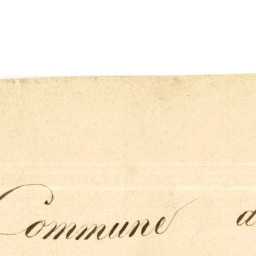 Commune d